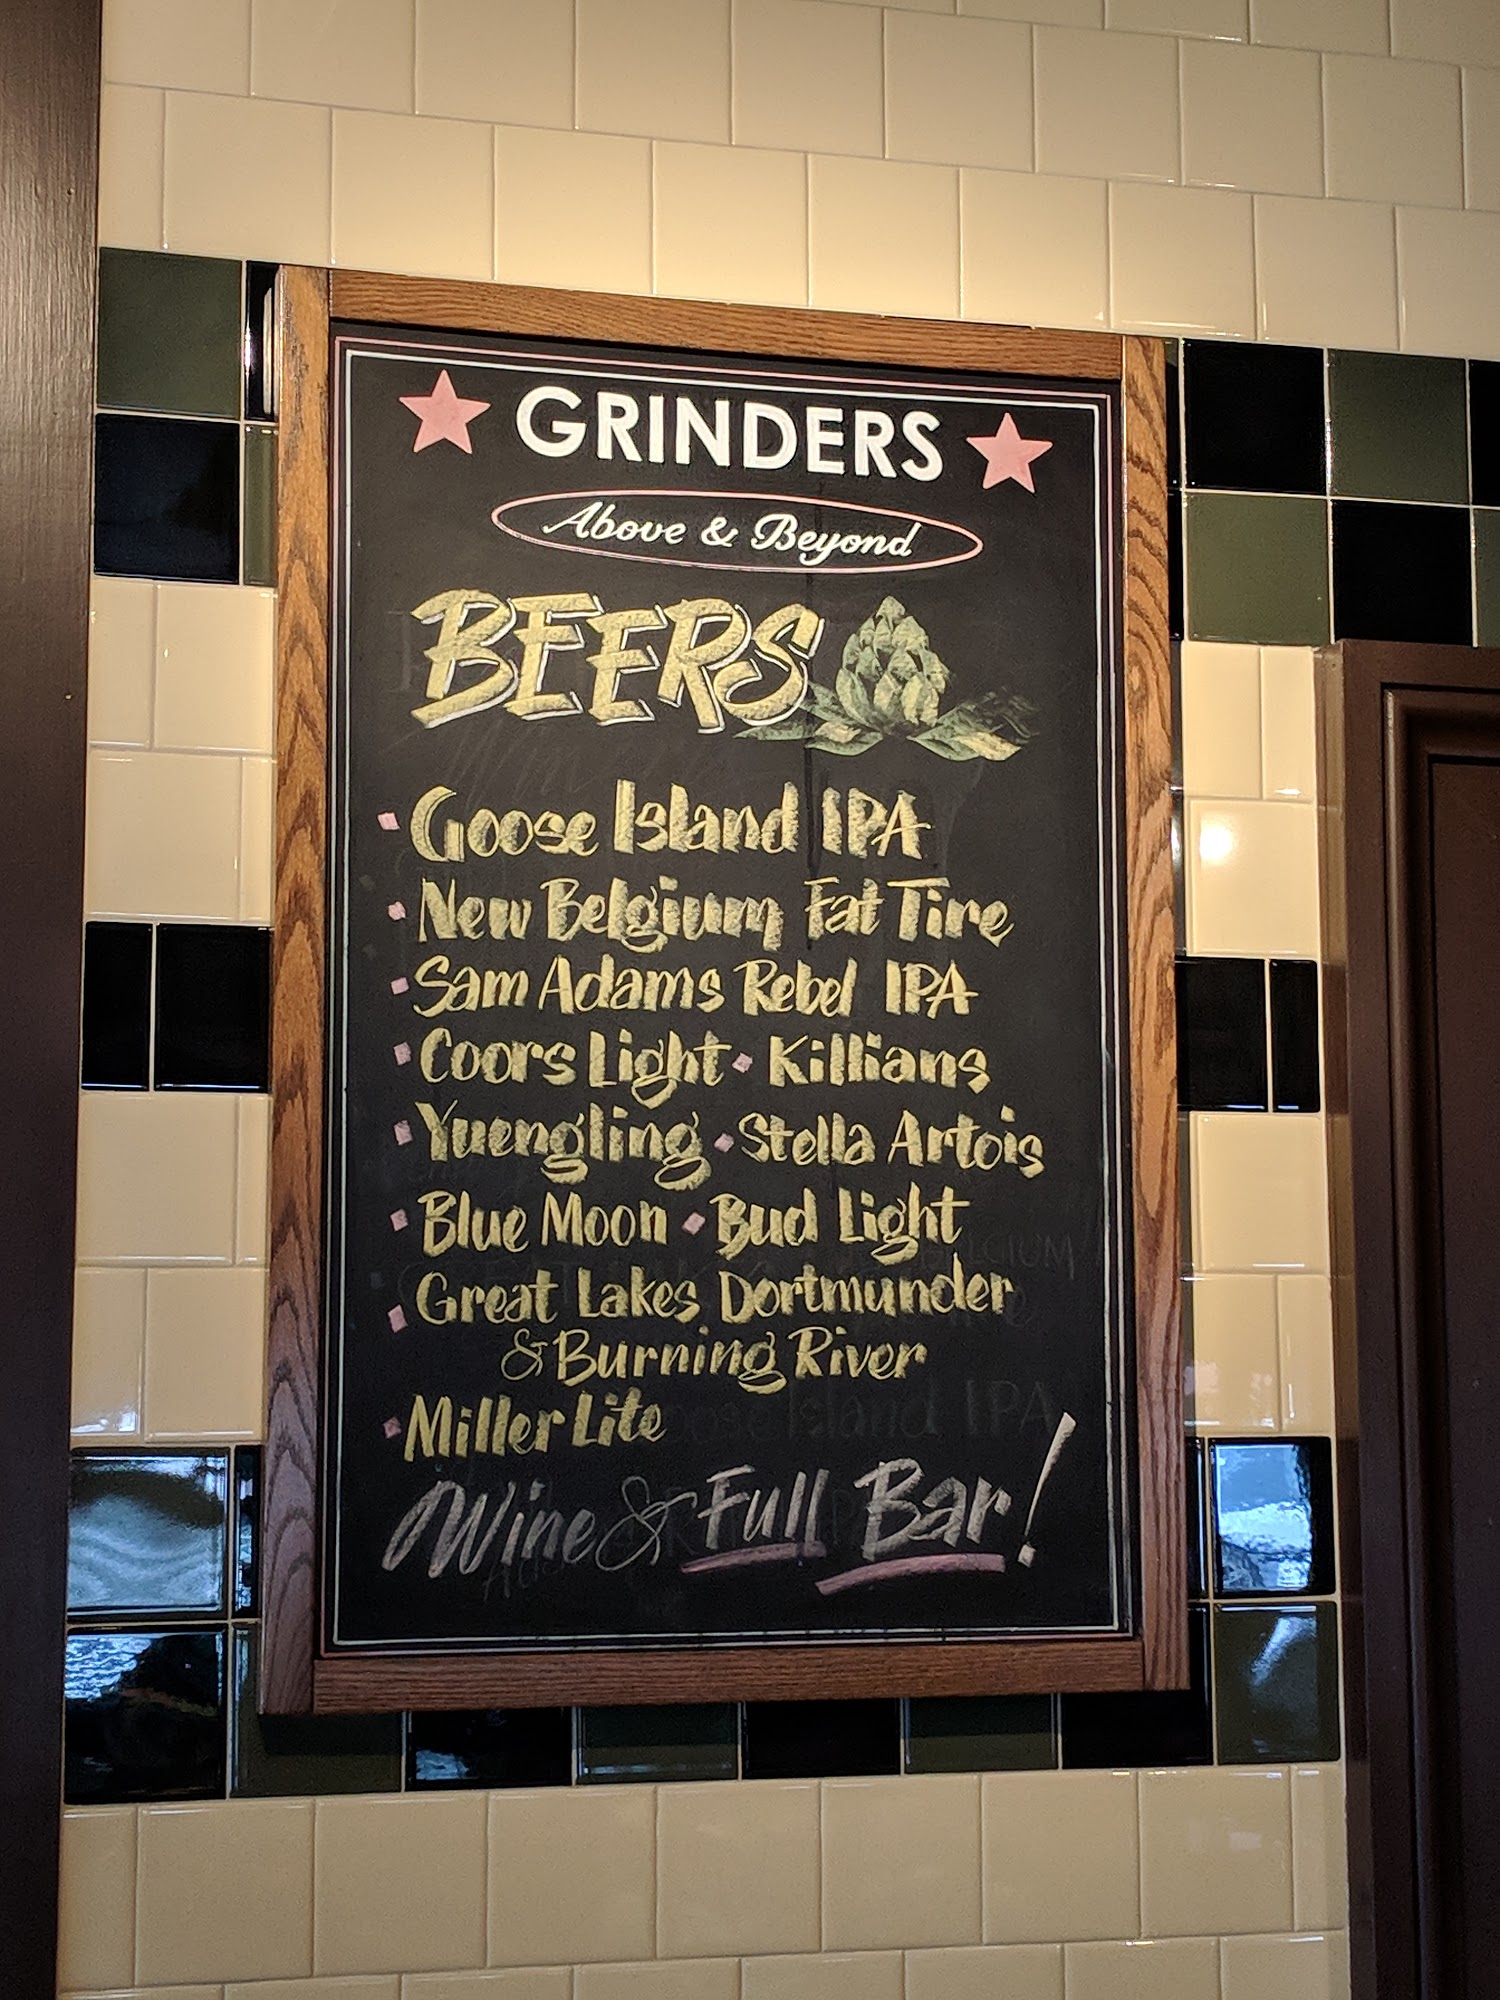 GRINDERS
Above & Beyond
BEERS
Goose Island IPA
New Belgium Fat Tire
Sam Adams Rebel IPA
Coors Light • Killians
Yuengling • Stella Artois
Blue Moon • Bud Light
Great Lakes Dortmunder
& Burning River
Miller Lite
Wine & Full Bar!